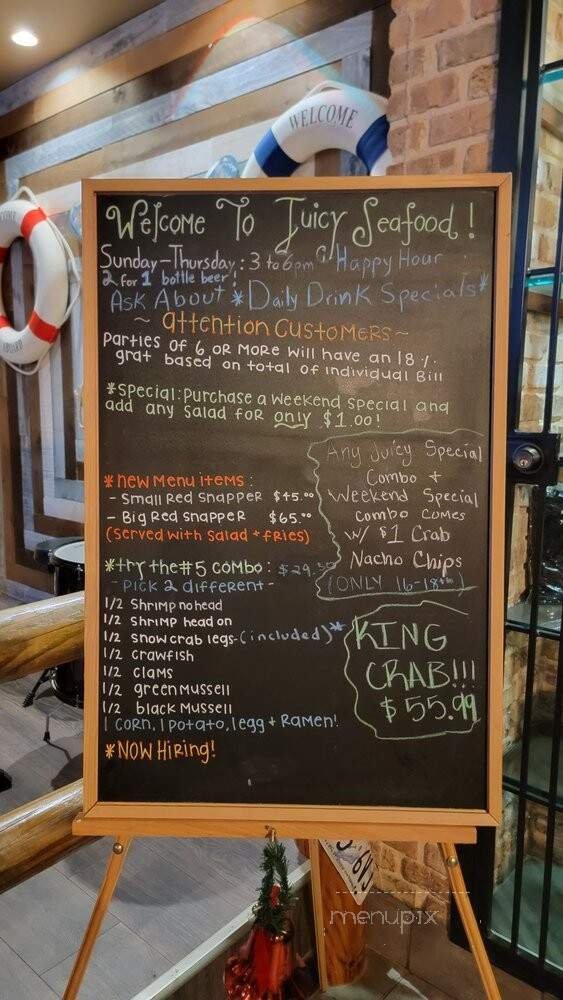 WELCOME
Welcome To Juicy Seafood!
Sunday-Thursday: 3 to 6pm Happy Hour
2 for 1 bottle beer!
Ask About *Daily Drink Specials*
~ attention Customers~
Parties of 6 or more will have an 18%
grat based on total of individual Bill
*Special: Purchase a Weekend Special and
add any Salad for only $1.00!
Any Juicy Special
Combo +
Weekend Special
Combo Comes
w/ $1 Crab
Nacho Chips
(ONLY 16-18th)
*new Menu items:
- Small Red Snapper $45.00
- Big Red Snapper $65.00
(Served with Salad + fries)
*try the #5 combo: $29.50
- Pick 2 different -
1/2 Shrimp no head
1/2 Shrimp head on
1/2 Snow crab legs-(included)*
1/2 Crawfish
1/2 Clams
1/2 green Mussell
1/2 black Mussell
1 corn, 1 Potato, 1 egg + Ramen!
*NOW Hiring!
KING
CRAB!!!
$55.99
menupix